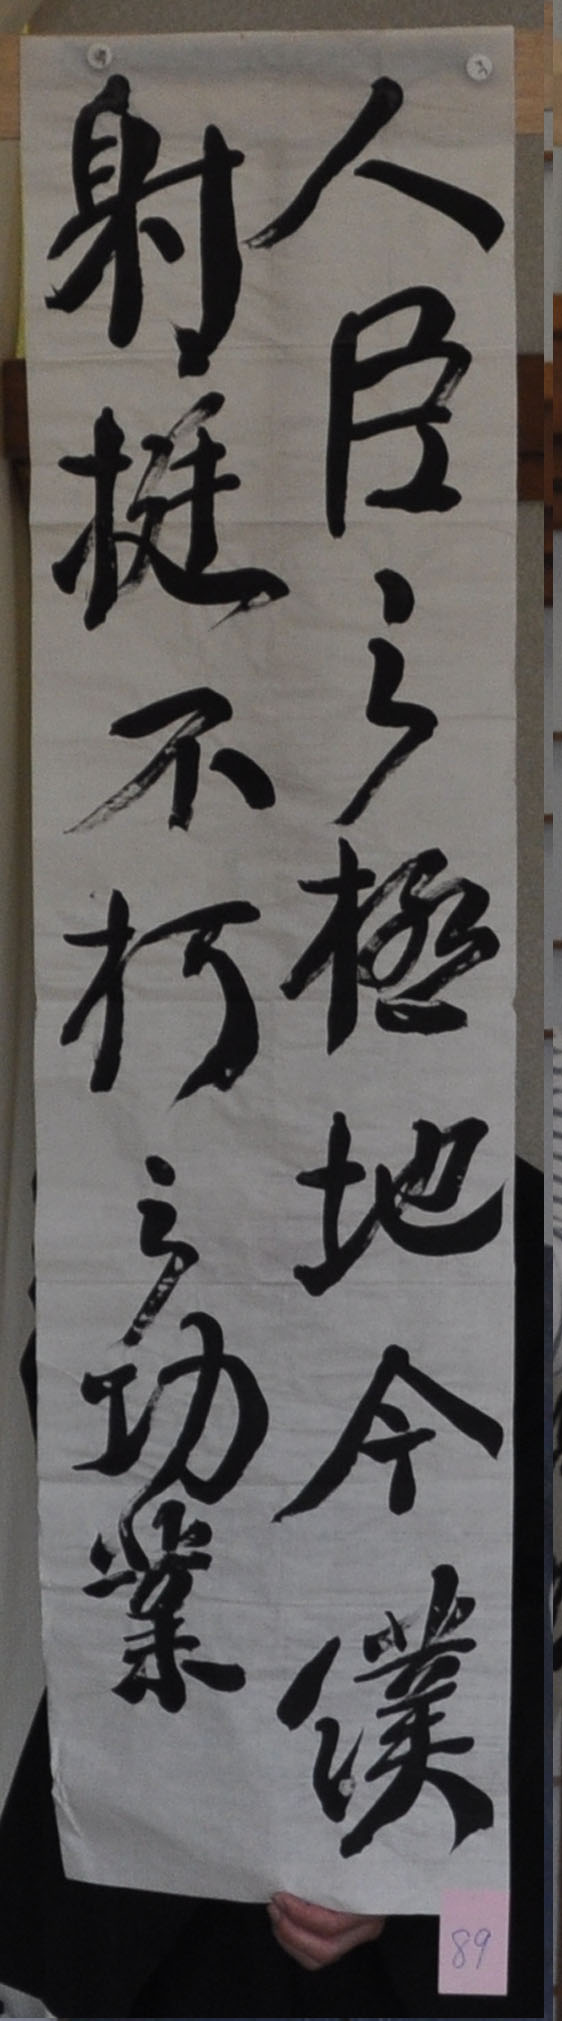 人臣之極地今僕
射挺不朽之功業
89